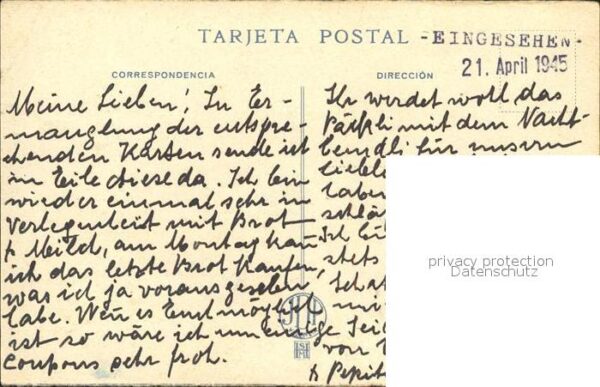 TARJETA POSTAL
-EINGESEHEN-
21. April 1945
CORRESPONDENCIA
DIRECCIÓN
Meine Lieben! In Er-
manglung der entspre-
chenden Karten sende ich
in Eile diese da. Ich bin
wieder einmal sehr in
Verlegenheit mit Brot
& Milch, am Montag kau
ich das letzte Brot kaufen,
was ich ja vorausgesehen
habe. Wenn es Euch möglich
ist so wäre ich um einige
Coupons sehr froh.
Ihr werdet wohl das
Päckli mit dem Nacht-
hemdli für unsern
Liebli
haben
schlä
Ich bi
stets
Schat
mi
Seid
von
& Pepit
privacy protection
Datenschutz